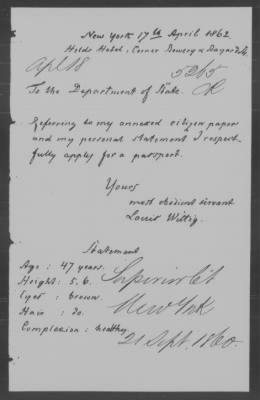 New York 17th April 1862
Helds Hotel, Corner Bowery &
Apl 18
5265
To the Department of State.
Referring to my annexed citizen paper
and my personal statement I respect-
fully apply for a passport.
Yours
most obedient servant
Louis Wittig.
Statement
Age : 47 years.
Height: 5. 6.
Eyes : brown.
Hair : do.
Complexion : healthy.
Superior Ct
New York
21 Sept. 1860.